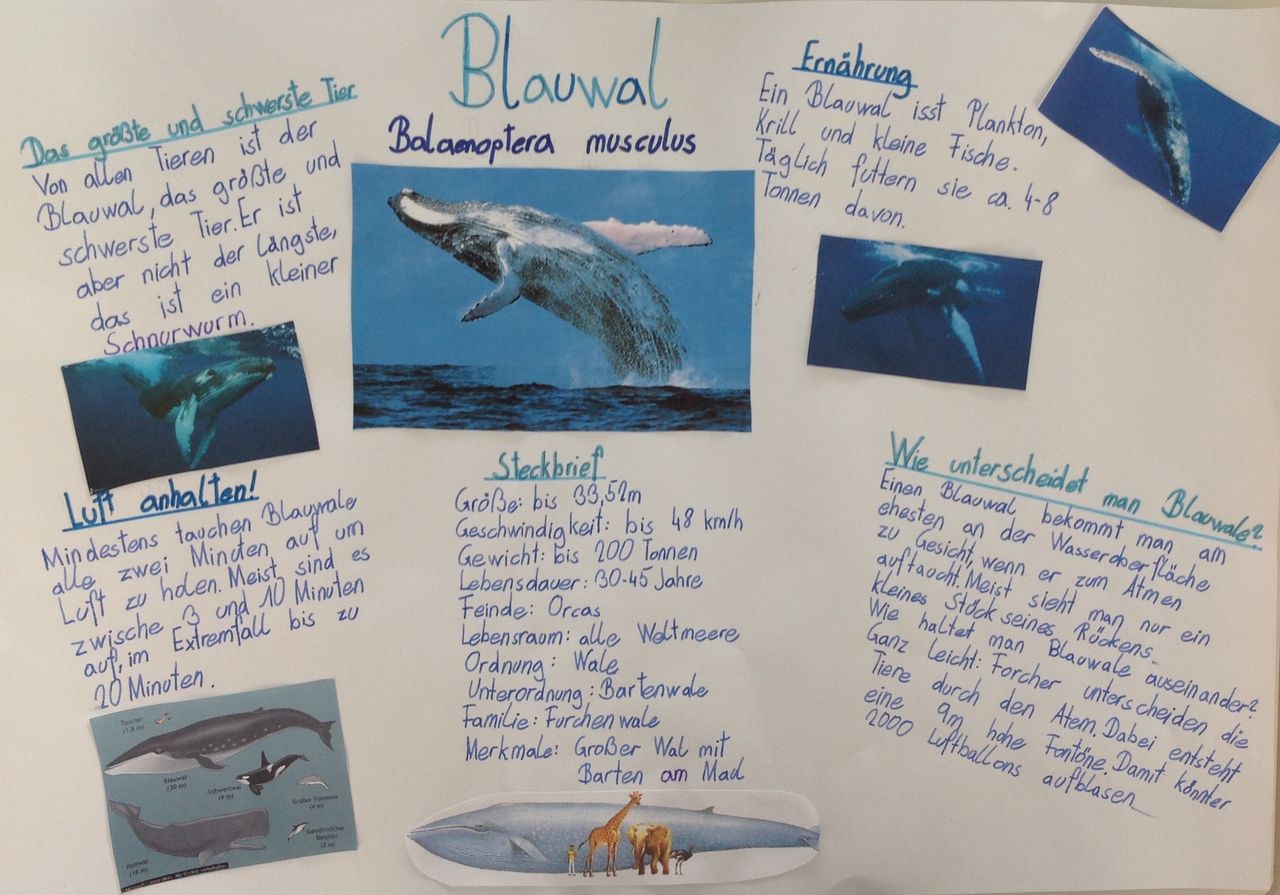 Blauwal
Balaenoptera musculus
Das größte und schwerste Tier
Von allen Tieren ist der
Blauwal, das größte und
schwerste Tier. Er ist
aber nicht der Längste,
das ist ein kleiner
Schnurwurm.
Luft anhalten!
Mindestens tauchen Blauwale
alle zwei Minuten auf um
Luft zu holen. Meist sind es
zwische 3 und 10 Minuten
auf, im Extremfall bis zu
20 Minuten.
Taucher
(1,8 m)
Blauwal
(30 m)
Schwertwal
(9 m)
Großer Tümmler
(4 m)
Gewöhnlicher
Delphin
(2 m)
Pottwal
(18 m)
Steckbrief
Größe: bis 33,51m
Geschwindigkeit: bis 48 km/h
Gewicht: bis 200 Tonnen
Lebensdauer: 30-45 Jahre
Feinde: Orcas
Lebensraum: alle Weltmeere
Ordnung: Wale
Unterordnung: Bartenwale
Familie: Furchenwale
Merkmale: Großer Wal mit
Barten am Maul
Ernährung
Ein Blauwal isst Plankton,
Krill und kleine Fische.
Täglich futtern sie ca. 4-8
Tonnen davon.
Wie unterscheidet man Blauwale?
Einen Blauwal bekommt man am
ehesten an der Wasseroberfläche
zu Gesicht, wenn er zum Atmen
auftaucht. Meist sieht man nur ein
kleines Stück seines Rückens.
Wie haltet man Blauwale auseinander?
Ganz leicht: Forcher unterscheiden die
Tiere durch den Atem. Dabei entsteht
eine 9m hohe Fontöne. Damit könnter
2000 Luftballons aufblasen